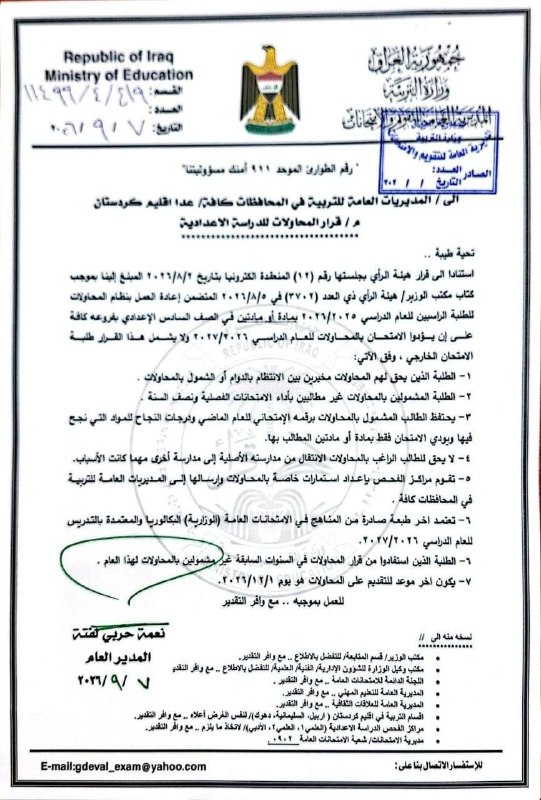 جمهورية العراق
وزارة التربية
المديرية العامة للتقويم والامتحانات
Republic of Iraq
Ministry of Education
القسم: ١١٤٩٩/٤/٤١٩
العدد:
التاريخ: ٢٠٢٦/٩/٧
وزارة التربية
مديرية العامة للتقويم والامتحانات
الصادر العدد:
التاريخ / / ٢٠٢
" رقم الطوارئ الموحد ٩١١ أمنك مسؤوليتنا"
الى / المديريات العامة للتربية في المحافظات كافة/ عدا اقليم كردستان
م/ قرار المحاولات للدراسة الاعدادية
تحية طيبة ..
استنادا الى قرار هيئة الرأي بجلستها رقم (١٢) المنعقدة الكترونيا بتاريخ ٢٠٢٦/٨/٢ المبلغ إلينا بموجب
كتاب مكتب الوزير/ هيئة الرأي ذي العدد (٣٧٠٢) في ٢٠٢٦/٨/٥ المتضمن إعادة العمل بنظام المحاولات
للطلبة الراسبين للعام الدراسي ٢٠٢٦/٢٠٢٥ بمادة أو مادتين في الصف السادس الإعدادي بفروعه كافة
على إن يسؤدوا الامتحان بالمحاولات للعام الدراسي ٢٠٢٧/٢٠٢٦ ولا يشمل هذا القرار طلبة
الامتحان الخارجي ، وفق الآتي:
١- الطلبة الذين يحق لهم المحاولات مخيرين بين الانتظام بالدوام أو الشمول بالمحاولات .
٢- الطلبة المشمولين بالمحاولات غير مطالبين بأداء الامتحانات الفصلية ونصف السنة .
٣- يحتفظ الطالب المشمول بالمحاولات برقمه الإمتحاني للعام الماضي ودرجات النجاح للمواد التي نجح
فيها ويودي الامتحان فقط بمادة أو مادتين المطالب بها.
٤- لا يحق للطالب الراغب بالمحاولات الانتقال من مدارسته الأصلية إلى مدرسة أخرى مهما كانت الأسباب.
٥- تقوم مراكز الفحص بإعداد استمارات خاصة بالمحاولات وإرسالها إلى المديريات العامة للتربية
في المحافظات كافة .
٦- تعتمد اخر طبعة صادرة من المناهج في الامتحانات العامة (الوزارية) البكالوريا والمعتمدة بالتدريس
للعام الدراسي ٢٠٢٧/٢٠٢٦.
٦- الطلبة الذين استفادوا من قرار المحاولات في السنوات السابقة غير مشمولين بالمحاولات لهذا العام .
٧- يكون اخر موعد للتقديم على المحاولات هو يوم ٢٠٢٦/١٢/١.
للعمل بموجبه .. مع وافر التقدير
نعمة حربي لفتة
المدير العام
٢٠٢٦/٩/٧
نسخه منه الى //
• مكتب الوزير/ قسم المتابعة/ للتفضل بالاطلاع .. مع وافر التقدير.
• مكتب وكيل الوزارة للشؤون الإدارية/ الفنية/ العلمية/ للتفضل بالاطلاع .. مع وافر التقدير
• اللجنة الدائمة للامتحانات العامة .. مع وافر التقدير.
• المديرية العامة للتعليم المهني .. مع وافر التقدير.
• المديرية العامة للعلاقات الثقافية .. مع وافر التقدير.
• اقسام التربية في اقليم كردستان ( اربيل، السليمانية، دهوك)/ لنفس الغرض أعلاه .. مع وافر التقدير.
• مراكز الفحص الدراسة الاعدادية (العلمي١، العلمي٢، الأدبي)/ لاتخاذ ما يلزم .. مع وافر التقدير.
• مديرية الامتحانات/ شعبة الامتحانات العامة ..٠٩٠٢
E-mail:gdeval_exam@yahoo.com
للإستفسار الاتصال بنا على:
REPUBLIC OF IRAQ